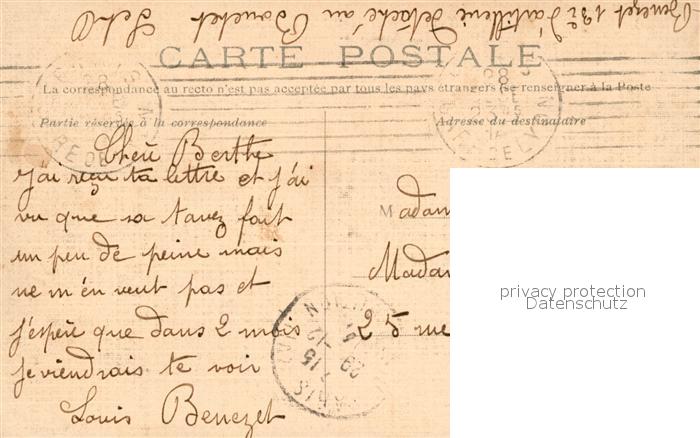 Benezet 13e d'artillerie Détaché au Bouchet S et O
CARTE POSTALE
La correspondance au recto n'est pas acceptée par tous les pays étrangers (se renseigner à la Poste
Partie réservée à la correspondance
Adresse du destinataire
Chère Berthe
j'ai reçu ta lettre et j'ai
vu que sa tavez fait
un peu de peine mais
ne m'en veut pas et
j'espère que dans 2 mois
je viendrais te voir
Louis Benezet
Madam
Madam
25 rue
PARIS
privacy protection
Datenschutz